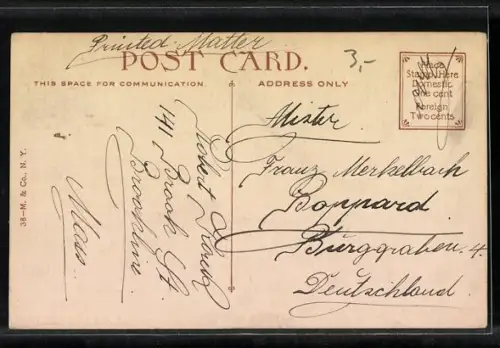 Printed Matter
3,-
POST CARD.
THIS SPACE FOR COMMUNICATION.
ADDRESS ONLY
Place
Stamp Here
Domestic
One cent
Foreign
Two cents
Robert
141 Brook St.
Brookline
Mass.
Mister
Franz Merkelbach
Boppard
Burggraben 4.
Deutschland.
38—M. & Co., N. Y.